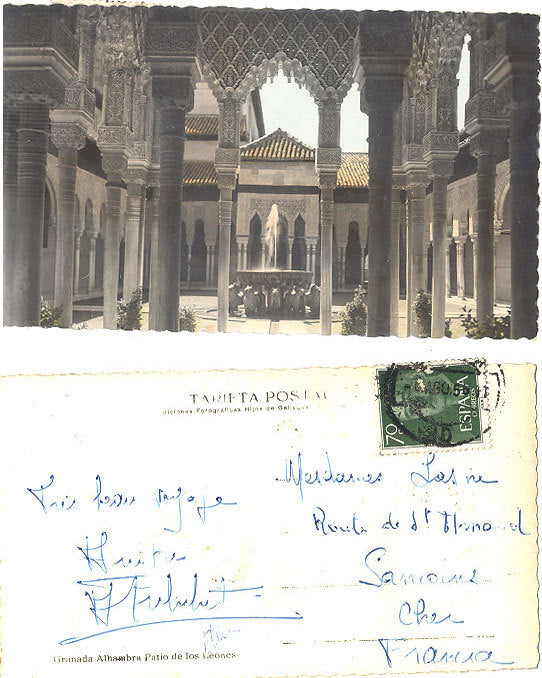 TARJETA POSTAL
Ediciones Fotográficas Hijos de Gallegos
70
ESPAÑA
CORREOS
Très beau voyage
Amitiés
Mesdames
Route de St Amand
Sancoins
Cher
Francia
Granada Alhambra Patio de los Leones